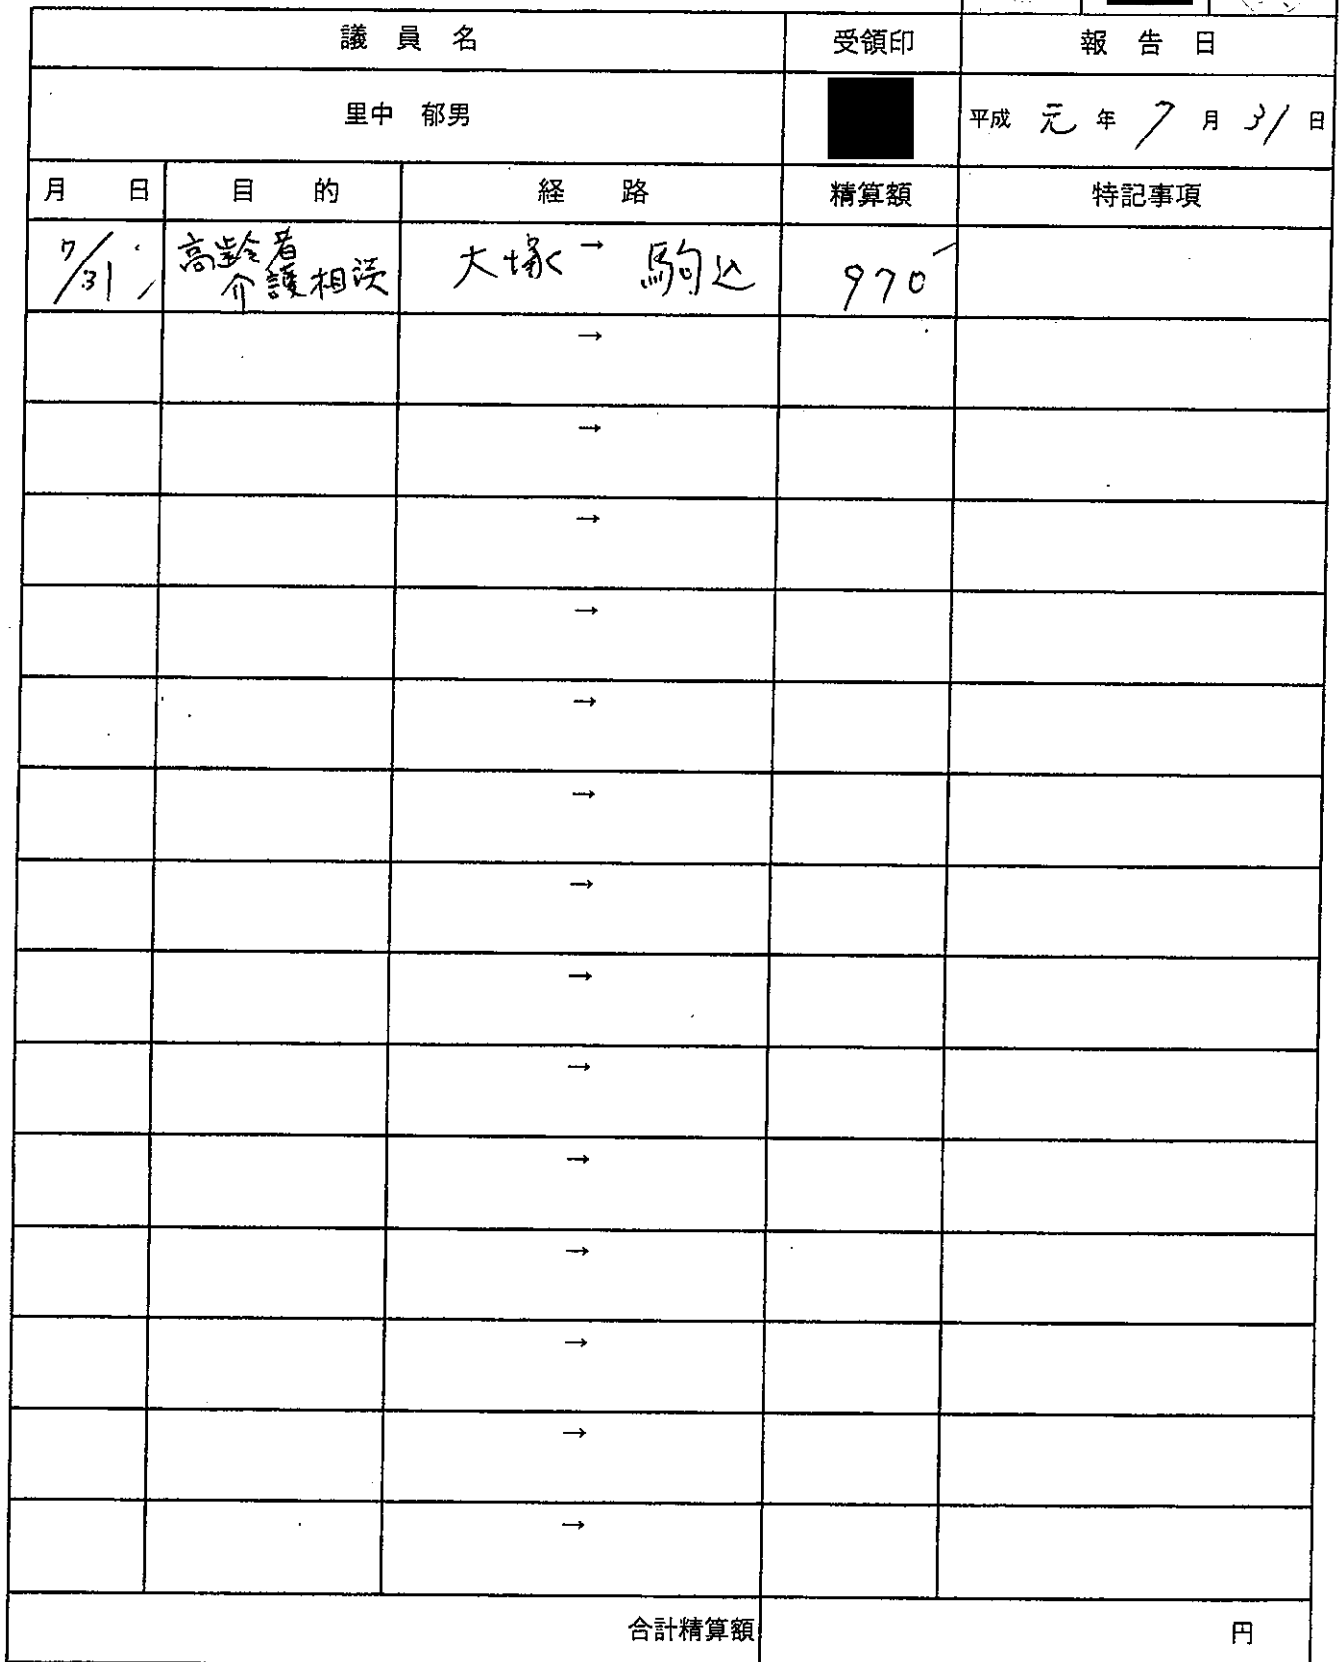 議員名 受領印 報告日
里中 郁男 平成 元 年 7 月 31 日
月日 目的 経路 精算額 特記事項
7/31 高齢者 大塚 → 駒込 970
介護相談
→
→
→
→
→
→
→
→
→
→
→
→
→
→
合計精算額 円